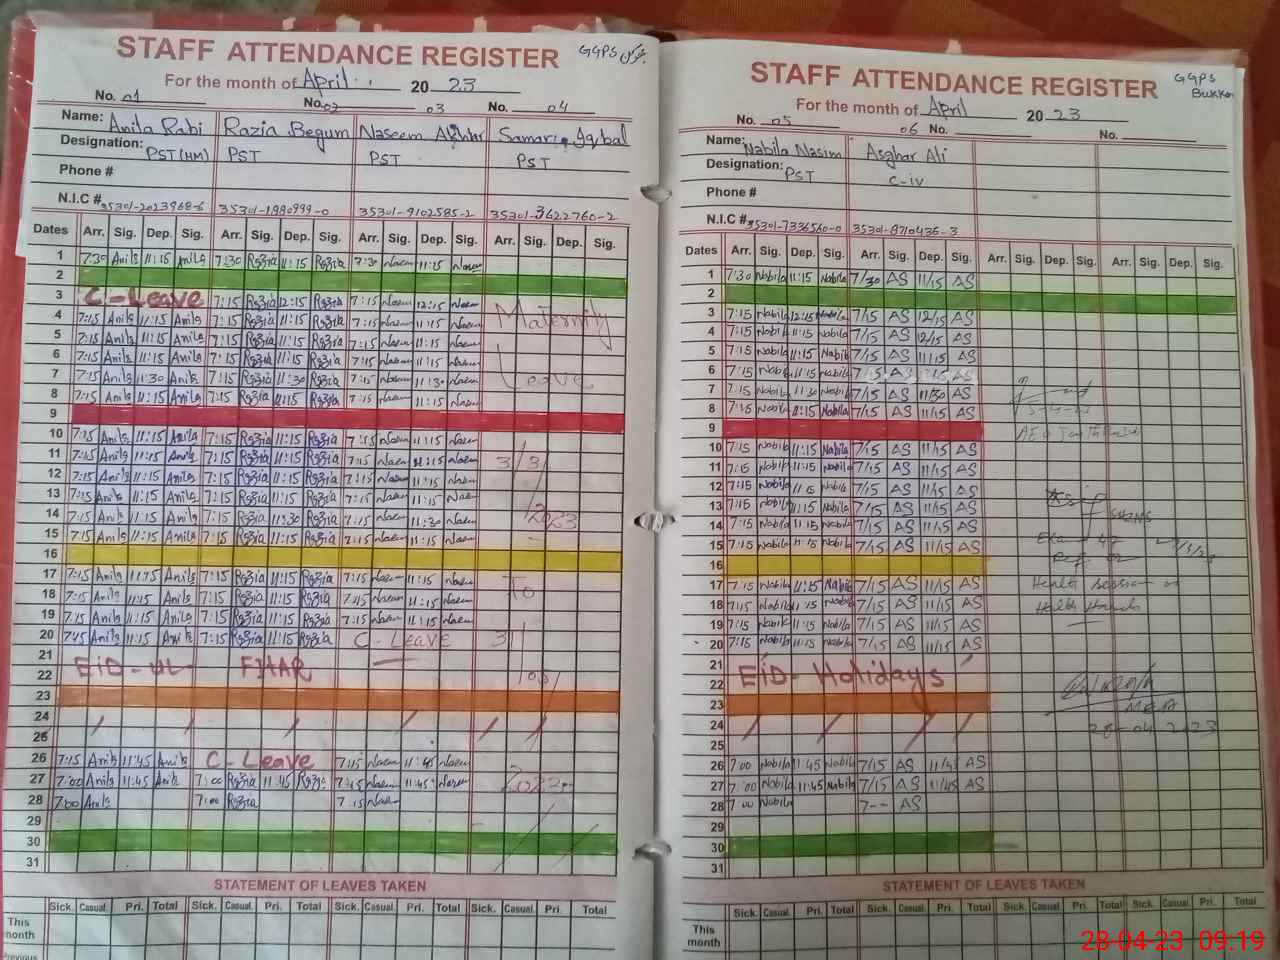 STAFF ATTENDANCE REGISTER GGPS
For the month of April 2023
No. 01 No. 02 03 No. 04
Name: Anila Rabi Razia Begum Naseem Akhtar Samar Iqbal
Designation: PST (HM) PST PST PST
Phone #
N.I.C # 35301-2023968-6 35301-1880999-0 35301-9102585-2 35301-3622760-2
Dates Arr. Sig. Dep. Sig. Arr. Sig. Dep. Sig. Arr. Sig. Dep. Sig. Arr. Sig. Dep. Sig.
1 7:30 Anila 11:15 Anila 7:30 Razia 11:15 Razia 7:30 Naseem 11:15 Naseem
2
3 C-Leave 7:15 Razia 12:15 Razia 7:15 Naseem 12:15 Naseem Maternity
4 7:15 Anila 11:15 Anila 7:15 Razia 11:15 Razia 7:15 Naseem 11:15 Naseem
5 7:15 Anila 11:15 Anila 7:15 Razia 11:15 Razia 7:15 Naseem 11:15 Naseem
6 7:15 Anila 11:15 Anila 7:15 Razia 11:15 Razia 7:15 Naseem 11:15 Naseem
7 7:15 Anila 11:30 Anila 7:15 Razia 11:30 Razia 7:15 Naseem 11:30 Naseem Leave
8 7:15 Anila 11:15 Anila 7:15 Razia 11:15 Razia 7:15 Naseem 11:15 Naseem
9
10 7:15 Anila 11:15 Anila 7:15 Razia 11:15 Razia 7:15 Naseem 11:15 Naseem
11 7:15 Anila 11:15 Anila 7:15 Razia 11:15 Razia 7:15 Naseem 11:15 Naseem 3/3/
12 7:15 Anila 11:15 Anila 7:15 Razia 11:15 Razia 7:15 Naseem 11:15 Naseem
13 7:15 Anila 11:15 Anila 7:15 Razia 11:15 Razia 7:15 Naseem 11:15 Naseem
14 7:15 Anila 11:15 Anila 7:15 Razia 11:30 Razia 7:15 Naseem 11:30 Naseem 2023
15 7:15 Anila 11:15 Anila 7:15 Razia 11:15 Razia 7:15 Naseem 11:15 Naseem
16
17 7:15 Anila 11:15 Anila 7:15 Razia 11:15 Razia 7:15 Naseem 11:15 Naseem To
18 7:15 Anila 11:15 Anila 7:15 Razia 11:15 Razia 7:15 Naseem 11:15 Naseem
19 7:15 Anila 11:15 Anila 7:15 Razia 11:15 Razia 7:15 Naseem 11:15 Naseem
20 7:15 Anila 11:15 Anila 7:15 Razia 11:15 Razia C-Leave 31
21
22 EID-UL FITAR
23
24
25
26 7:15 Anila 11:45 Anila C-Leave 7:15 Naseem 11:45 Naseem
27 7:00 Anila 11:45 Anila 7:00 Razia 11:45 Razia 7:15 Naseem 11:45 Naseem 2023
28 7:00 Anila 7:00 Razia 7:15 Naseem
29
30
31
STATEMENT OF LEAVES TAKEN
Sick. Casual. Pri. Total Sick. Casual. Pri. Total Sick. Casual. Pri. Total Sick. Casual Pri. Total
This month
Previous
STAFF ATTENDANCE REGISTER GGPS Bukken
For the month of April 2023
No. 05 06 No. No.
Name: Nabila Nasim Asghar Ali
Designation: PST C-iv
Phone #
N.I.C # 35301-7336560-0 35301-8710436-3
Dates Arr. Sig. Dep. Sig. Arr. Sig. Dep. Sig. Arr. Sig. Dep. Sig. Arr. Sig. Dep. Sig.
1 7:30 Nabila 11:15 Nabila 7/30 AS 11/15 AS
2
3 7:15 Nabila 12:15 Nabila 7/15 AS 12/15 AS
4 7:15 Nabila 11:15 Nabila 7/15 AS 12/15 AS
5 7:15 Nabila 11:15 Nabila 7/15 AS 11/15 AS
6 7:15 Nabila 11:15 Nabila 7/15 AS 11/15 AS
7 7:15 Nabila 11:30 Nabila 7/15 AS 11/30 AS
8 7:15 Nabila 11:15 Nabila 7/15 AS 11/15 AS
9 AEO
10 7:15 Nabila 11:15 Nabila 7/15 AS 11/15 AS
11 7:15 Nabila 11:15 Nabila 7/15 AS 11/15 AS
12 7:15 Nabila 11:15 Nabila 7/15 AS 11/15 AS
13 7:15 Nabila 11:15 Nabila 7/15 AS 11/15 AS
14 7:15 Nabila 11:15 Nabila 7/15 AS 11/15 AS SH&NS
15 7:15 Nabila 11:15 Nabila 7/15 AS 11/15 AS Exam 42
16 Ref 02
17 7:15 Nabila 11:15 Nabila 7/15 AS 11/15 AS Health session
18 7:15 Nabila 11:15 Nabila 7/15 AS 11/15 AS Health
19 7:15 Nabila 11:15 Nabila 7/15 AS 11/15 AS
20 7:15 Nabila 11:15 Nabila 7/15 AS 11/15 AS
21
22 EID-Holidays
23 MEA
24 28-04-2023
25
26 7:00 Nabila 11:45 Nabila 7/15 AS 11/45 AS
27 7:00 Nabila 11:45 Nabila 7/15 AS 11/45 AS
28 7:00 Nabila 7-- AS
29
30
31
STATEMENT OF LEAVES TAKEN
Sick. Casual. Pri. Total Sick. Casual. Pri. Total Sick. Casual. Pri. Total Sick. Casual. Pri. Total
This month
28-04-23 09:19